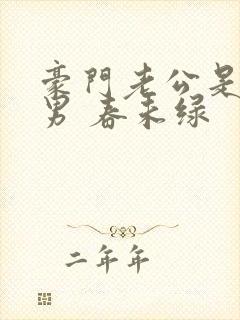 豪門老公是
男 春未绿
二年年